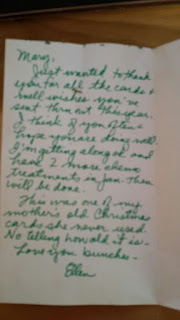 Mary,
Just wanted to thank
you for all the cards &
well wishes you've
sent thru out this year.
I think of you often &
hope you are doing well.
I'm getting along ok and
have 2 more chemo
treatments in Jan. Then
will be done.
This was one of my
mother's old Christmas
cards she never used.
No telling how old it is.
Love you bunches -
Ellen